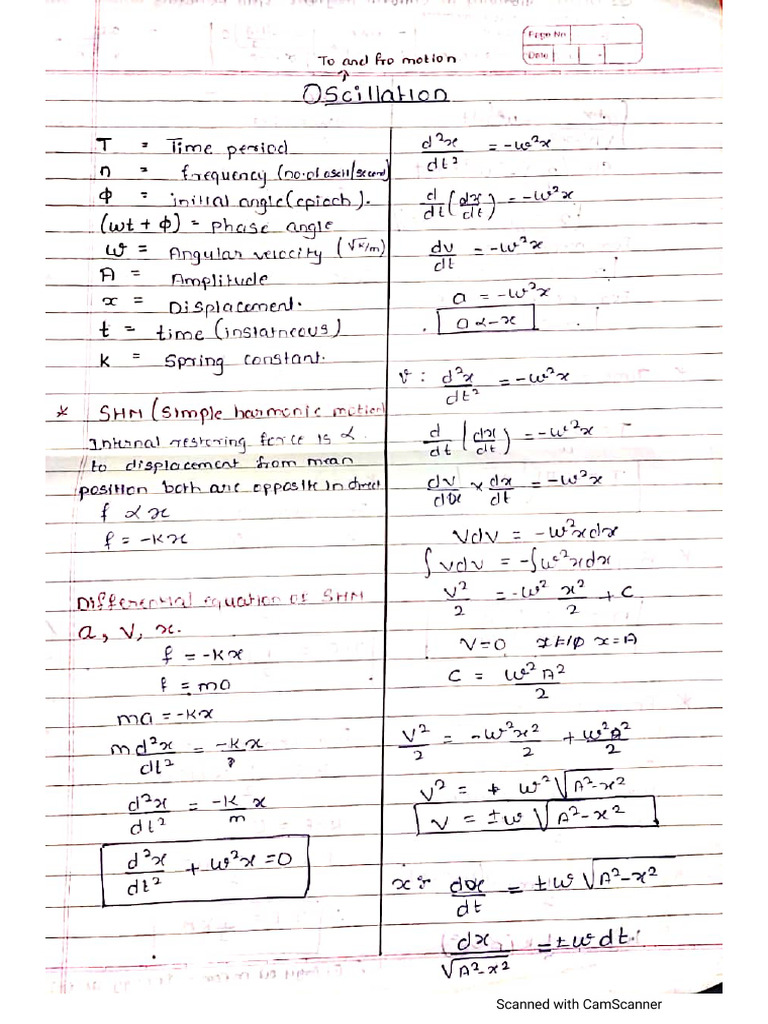 Page No
Date
To and fro motion
↑
Oscillation
T = Time period
n = frequency (no. of oscill/second)
ϕ = initial angle (epioch).
(wt + ϕ) = phase angle
ω = Angular velocity (√k/m)
A = Amplitude
x = Displacement.
t = time (instatneous)
k = Spring constant.
* SHM (Simple harmonic motion)
Internal restering force is α
to displacement from mean
position both are opposite in direct
f α x
f = -kx
Differential equation of SHM
a, v, x.
f = -kx
f = ma
ma = -kx
md²x/dt² = -kx
d²x/dt² = -k/m x
d²x/dt² + ω²x = 0
d²x/dt² = -ω²x
d/dt (dx/dt) = -ω²x
dv/dt = -ω²x
a = -ω²x
a α -x
v : d²x/dt² = -ω²x
d/dt (dx/dt) = -ω²x
dv/dx × dx/dt = -ω²x
vdv = -ω²xdx
∫vdv = -∫ω²xdx
v²/2 = -ω² x²/2 + C
v=0 x=A
C = ω²A²/2
v²/2 = -ω²x²/2 + ω²A²/2
v² = + ω²√A²-x²
v = ±ω √A²-x²
x : dx/dt = ±ω √A²-x²
dx/√A²-x² = ±ωdt.
Scanned with CamScanner